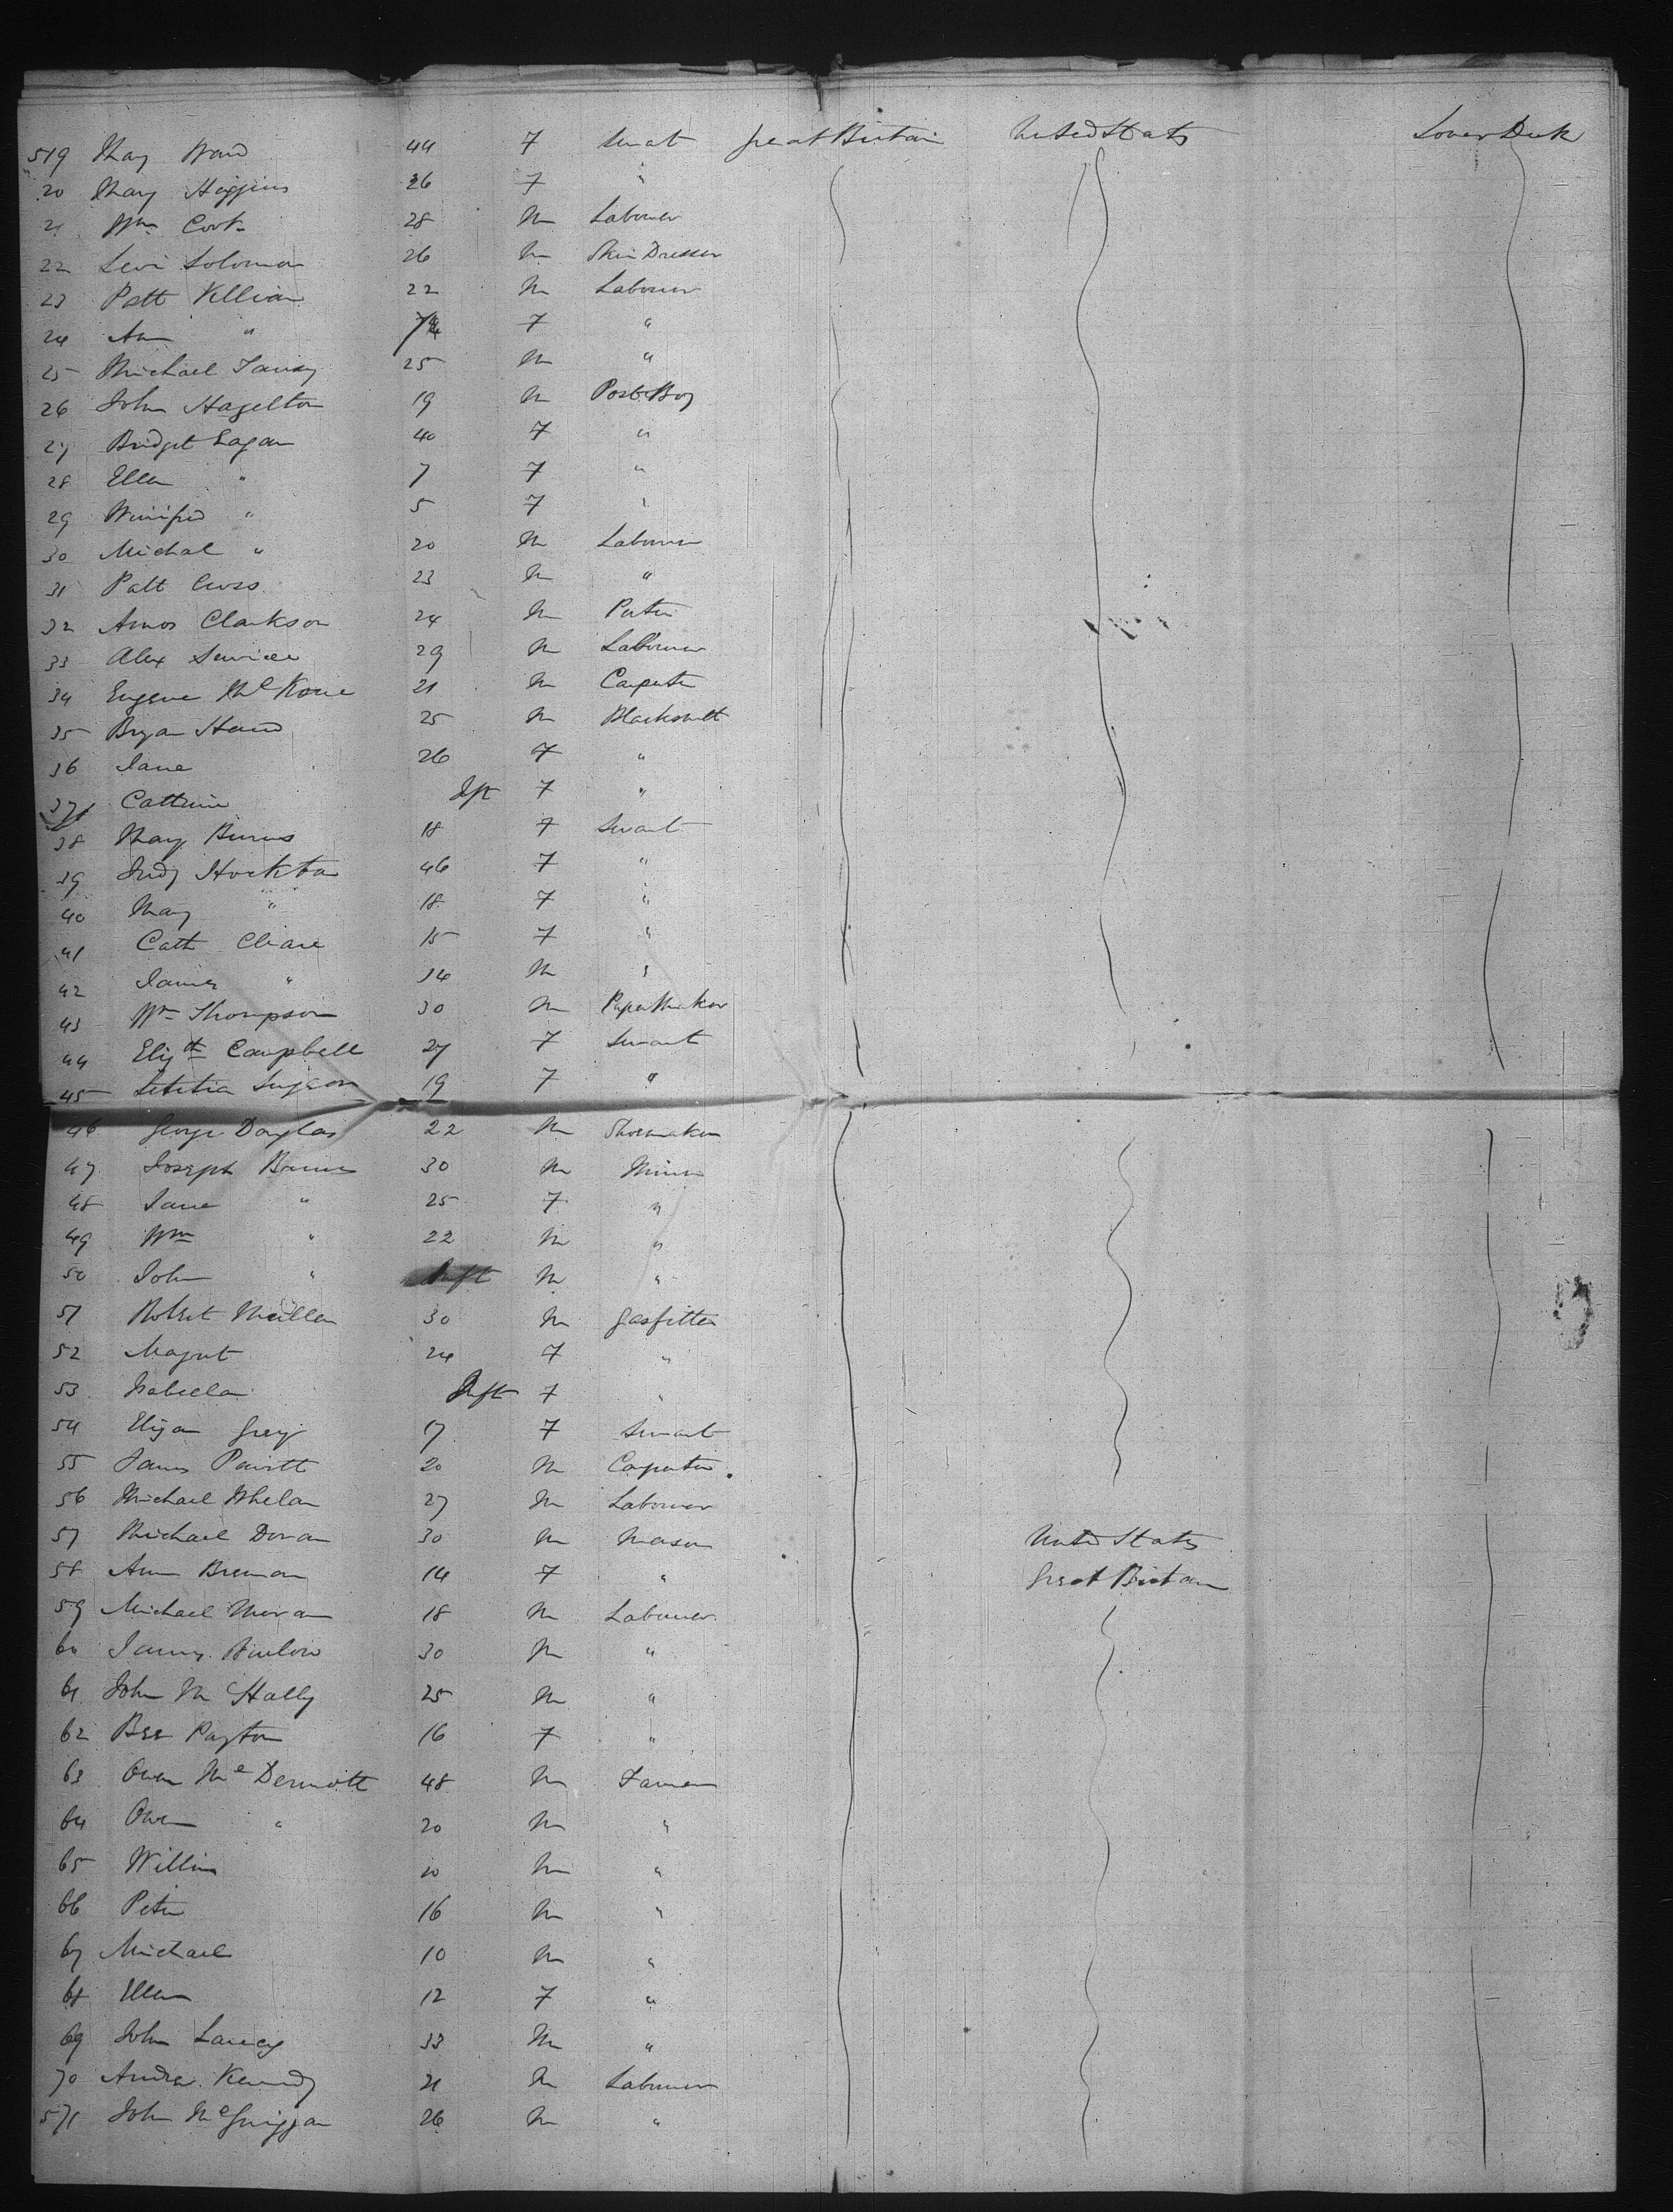 519 Mary Ward 44 F Servant Great Britain United States Lower Deck
20 Mary Higgins 26 F "
21 Wm Cook 28 M Labourer
22 Levi Solomon 26 M Skin Dresser
23 Patt Killian 22 M Labourer
24 Ann " F "
25 Michael 25 M "
26 John Hazelton 19 M Post Boy
27 Bridget Eagan 40 F "
28 Ellen " 7 F "
29 Winifred " 5 F "
30 Michal " 20 M Labourer
31 Patt Cross 23 M "
32 Amos Clarkson 24 M Porter
33 Alex Service 29 M Labourer
34 Eugene Mc 21 M Carpenter
35 Bryan Hand 25 M Blacksmith
36 Jane 26 F "
37 Cathrine Inft F "
38 Mary Burns 18 F Servant
39 Judy 46 F "
40 Mary " 18 F "
41 Cath Cleare 15 F "
42 James " 14 M "
43 Wm Thompson 30 M Paper Maker
44 Elizth Campbell 27 F Servant
45 Letitia 19 F "
46 George Douglas 22 M Shoemaker
47 Joseph 30 M Miner
48 Jane " 25 F "
49 Wm " 22 M "
50 John " Inft M "
51 Robert 30 M Gasfitter
52 Magret 24 F "
53 Isabella Inft F "
54 Eliza Grey 17 F Servant
55 James 20 M Carpenter
56 Michael Whelan 27 M Labourer
57 Michael Doran 30 M Mason United States
58 Ann Brennan 14 F " Great Britain
59 Michael Moran 18 M Labourer
60 James 30 M "
61 John Mc Hally 25 M "
62 Bee Payton 16 F "
63 Owen Mc Dermott 48 M Farmer
64 Owen " 20 M "
65 William M "
66 Peter 16 M "
67 Michael 10 M "
68 Ellen 12 F "
69 John 33 M "
70 Andrew Kennedy 21 M Labourer
571 John McGuiggan 26 M "